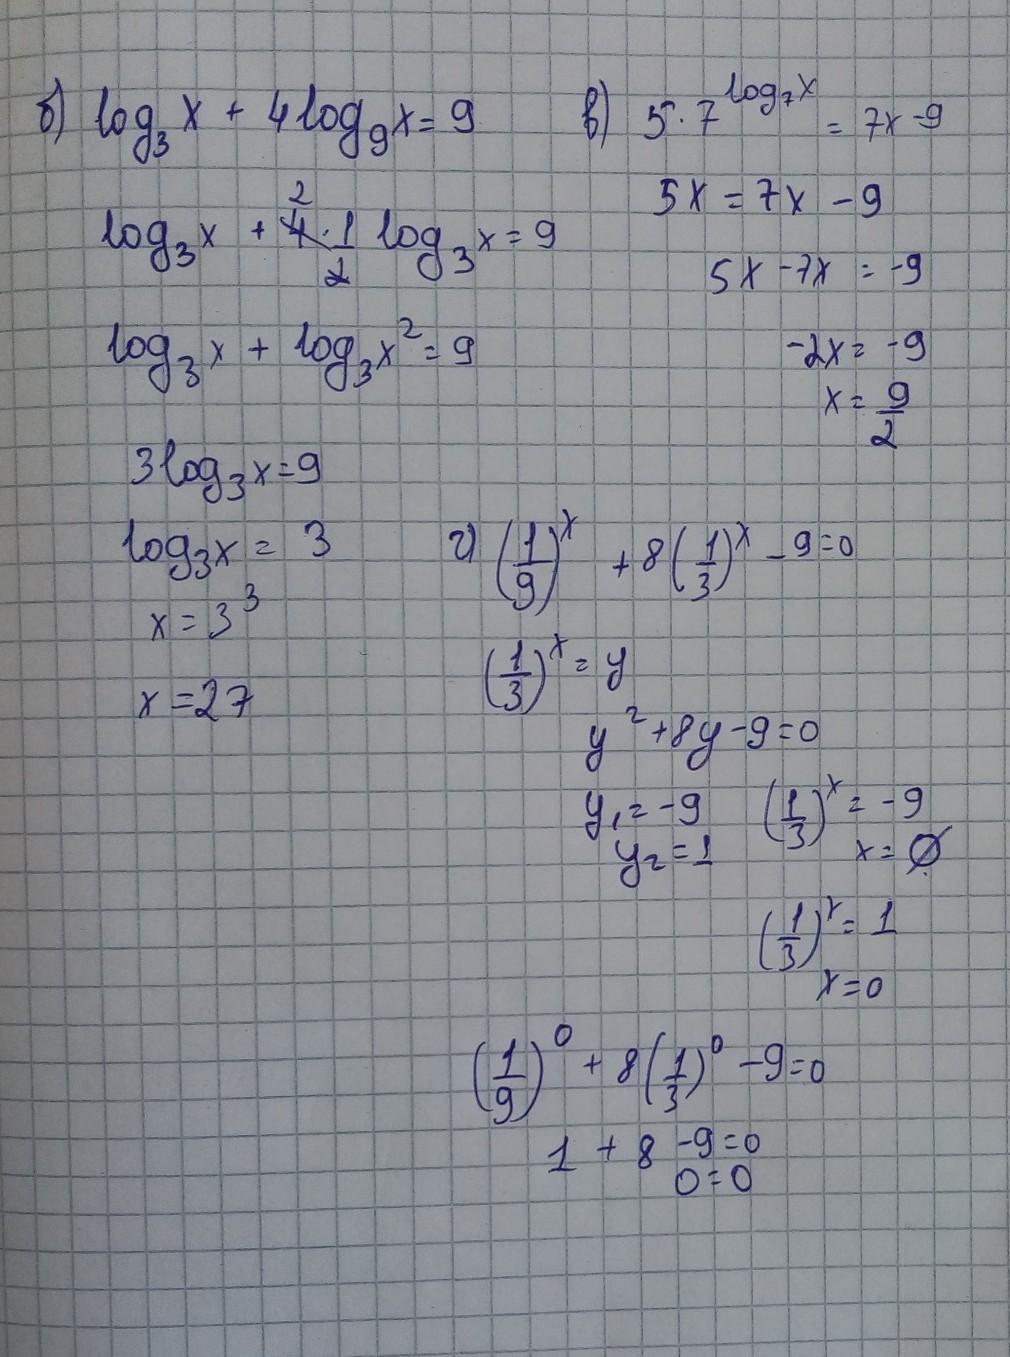 б) log₃ x + 4 log₉ x = 9
log₃ x + 4 · 1/2 log₃ x = 9
2
log₃ x + log₃ x² = 9
3 log₃ x = 9
log₃ x = 3
x = 3³
x = 27
в) 5 · 7^(log₇ x) = 7x - 9
5x = 7x - 9
5x - 7x = -9
-2x = -9
x = 9/2
г) (1/9)^x + 8 (1/3)^x - 9 = 0
(1/3)^x = y
y² + 8y - 9 = 0
y₁ = -9
y₂ = 1
(1/3)^x = -9
x = ∅
(1/3)^x = 1
x = 0
(1/9)^0 + 8 (1/3)^0 - 9 = 0
1 + 8 - 9 = 0
0 = 0